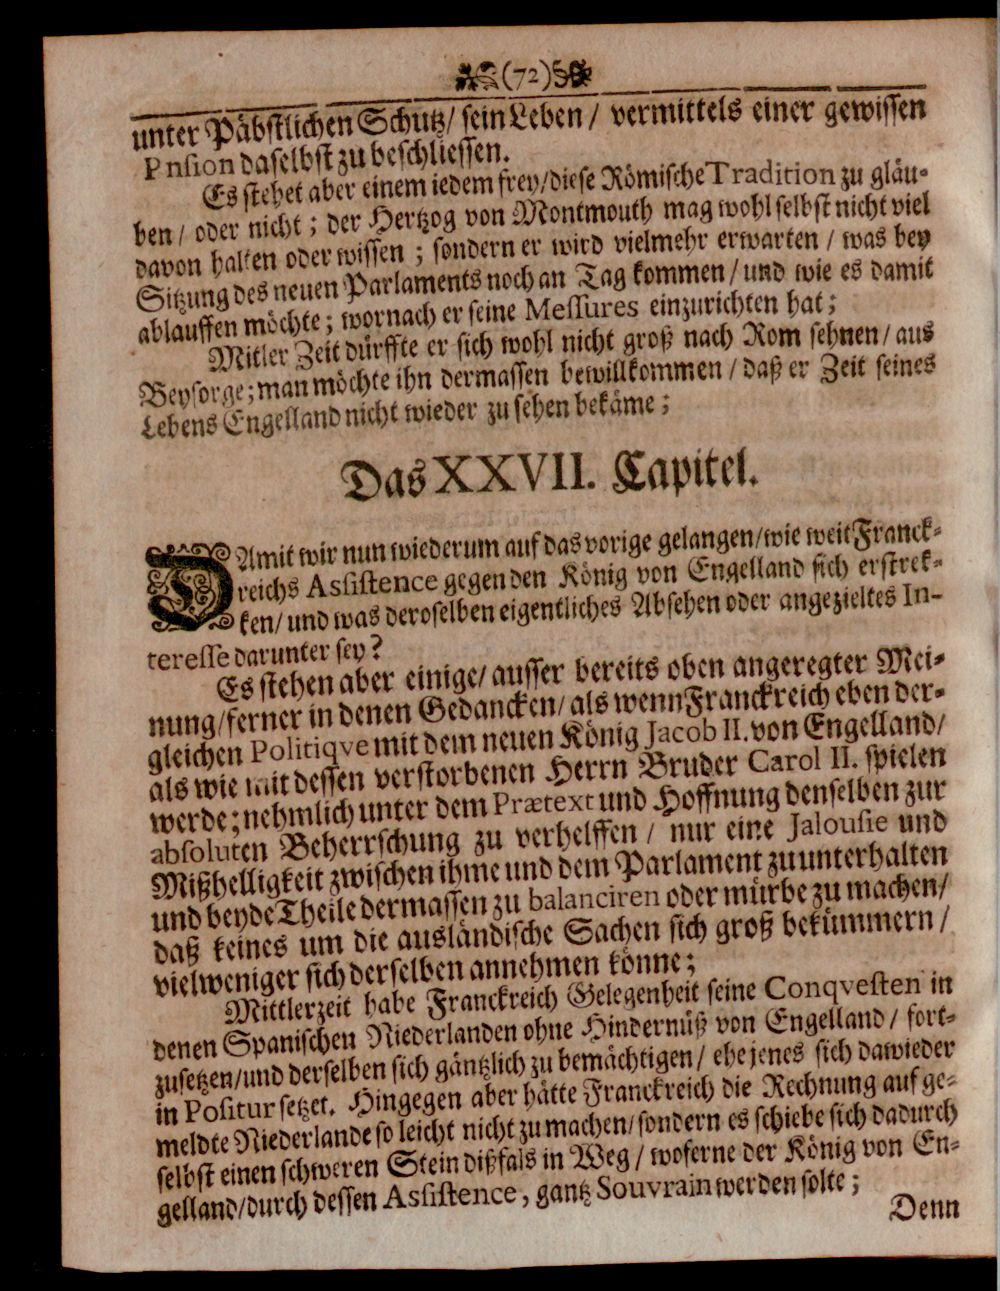 (72)
unter Päbstlichen Schutz/ sein Leben / vermittels einer gewissen
Pnsion daselbst zu beschliessen.
Es stehet aber einem iedem frey/diese Römische Tradition zu gläu-
ben / oder nicht ; der Hertzog von Montmouth mag wohl selbst nicht viel
davon halten oder wissen ; sondern er wird vielmehr erwarten / was bey
Sitzung des neuen Parlaments noch an Tag kommen / und wie es damit
ablauffen möchte ; wornach er seine Messures einzurichten hat ;
Mitler Zeit dürffte er sich wohl nicht groß nach Rom sehnen / aus
Beysorge ; man möchte ihn dermassen bewillkommen / daß er Zeit seines
Lebens Engelland nicht wieder zu sehen bekäme ;
Das XXVII. Capitel.
DAmit wir nun wiederum auf das vorige gelangen/wie weit Franck-
reichs Assistence gegen den König von Engelland sich erstrek-
ken/ und was deroselben eigentliches Absehen oder angezieltes In-
teresse darunter sey?
Es stehen aber einige/ ausser bereits oben angeregter Mei-
nung/ferner in denen Gedancken/ als wenn Franckreich eben der-
gleichen Politiqve mit dem neuen König Jacob II. von Engelland/
als wie mit dessen verstorbenen Herrn Bruder Carol II. spielen
werde ; nehmlich unter dem Prætext und Hoffnung denselben zur
absoluten Beherrschung zu verhelffen / nur eine Jalousie und
Mißhelligkeit zwischen ihme und dem Parlament zu unterhalten
und beyde Theile dermassen zu balanciren oder mürbe zu machen/
daß keines um die ausländische Sachen sich groß bekümmern /
vielweniger sich derselben annehmen könne ;
Mittlerzeit habe Franckreich Gelegenheit seine Conqvesten in
denen Spanischen Niederlanden ohne Hindernüß von Engelland / fort-
zusetzen/und derselben sich gäntzlich zu bemächtigen / ehe jenes sich dawieder
in Positur setzet. Hingegen aber hätte Franckreich die Rechnung auf ge-
meldte Niederlande so leicht nicht zu machen/ sondern es schiebe sich dadurch
selbst einen schweren Stein dißfals in Weg / woferne der König von En-
gelland/durch dessen Assistence, gantz Souvrain werden solte ;
Denn